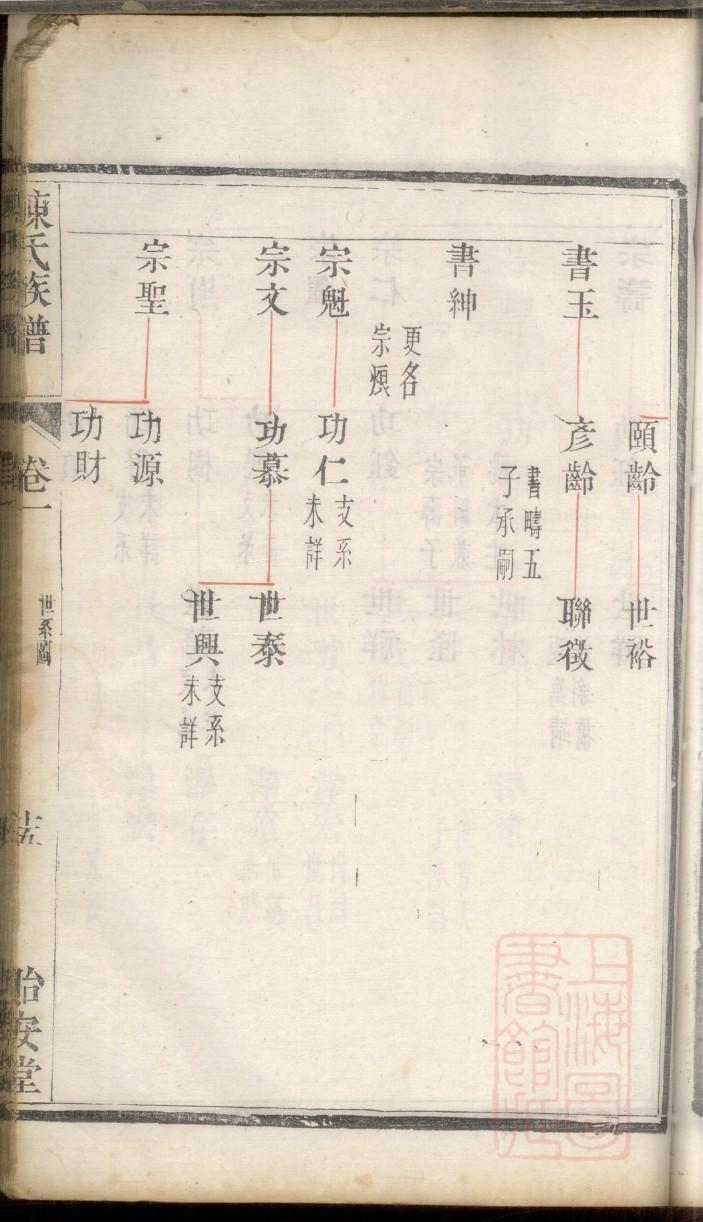 頤齡
世裕
書玉
彥齡
書疇五
子承嗣
聯徵
書紳
更名
宗頫
宗魁
功仁
支系
未詳
宗文
功慕
世泰
世興
支系
未詳
宗聖
功源
功財
陳氏族譜
卷一
世系圖
十五
怡安堂
上海圖
書館藏